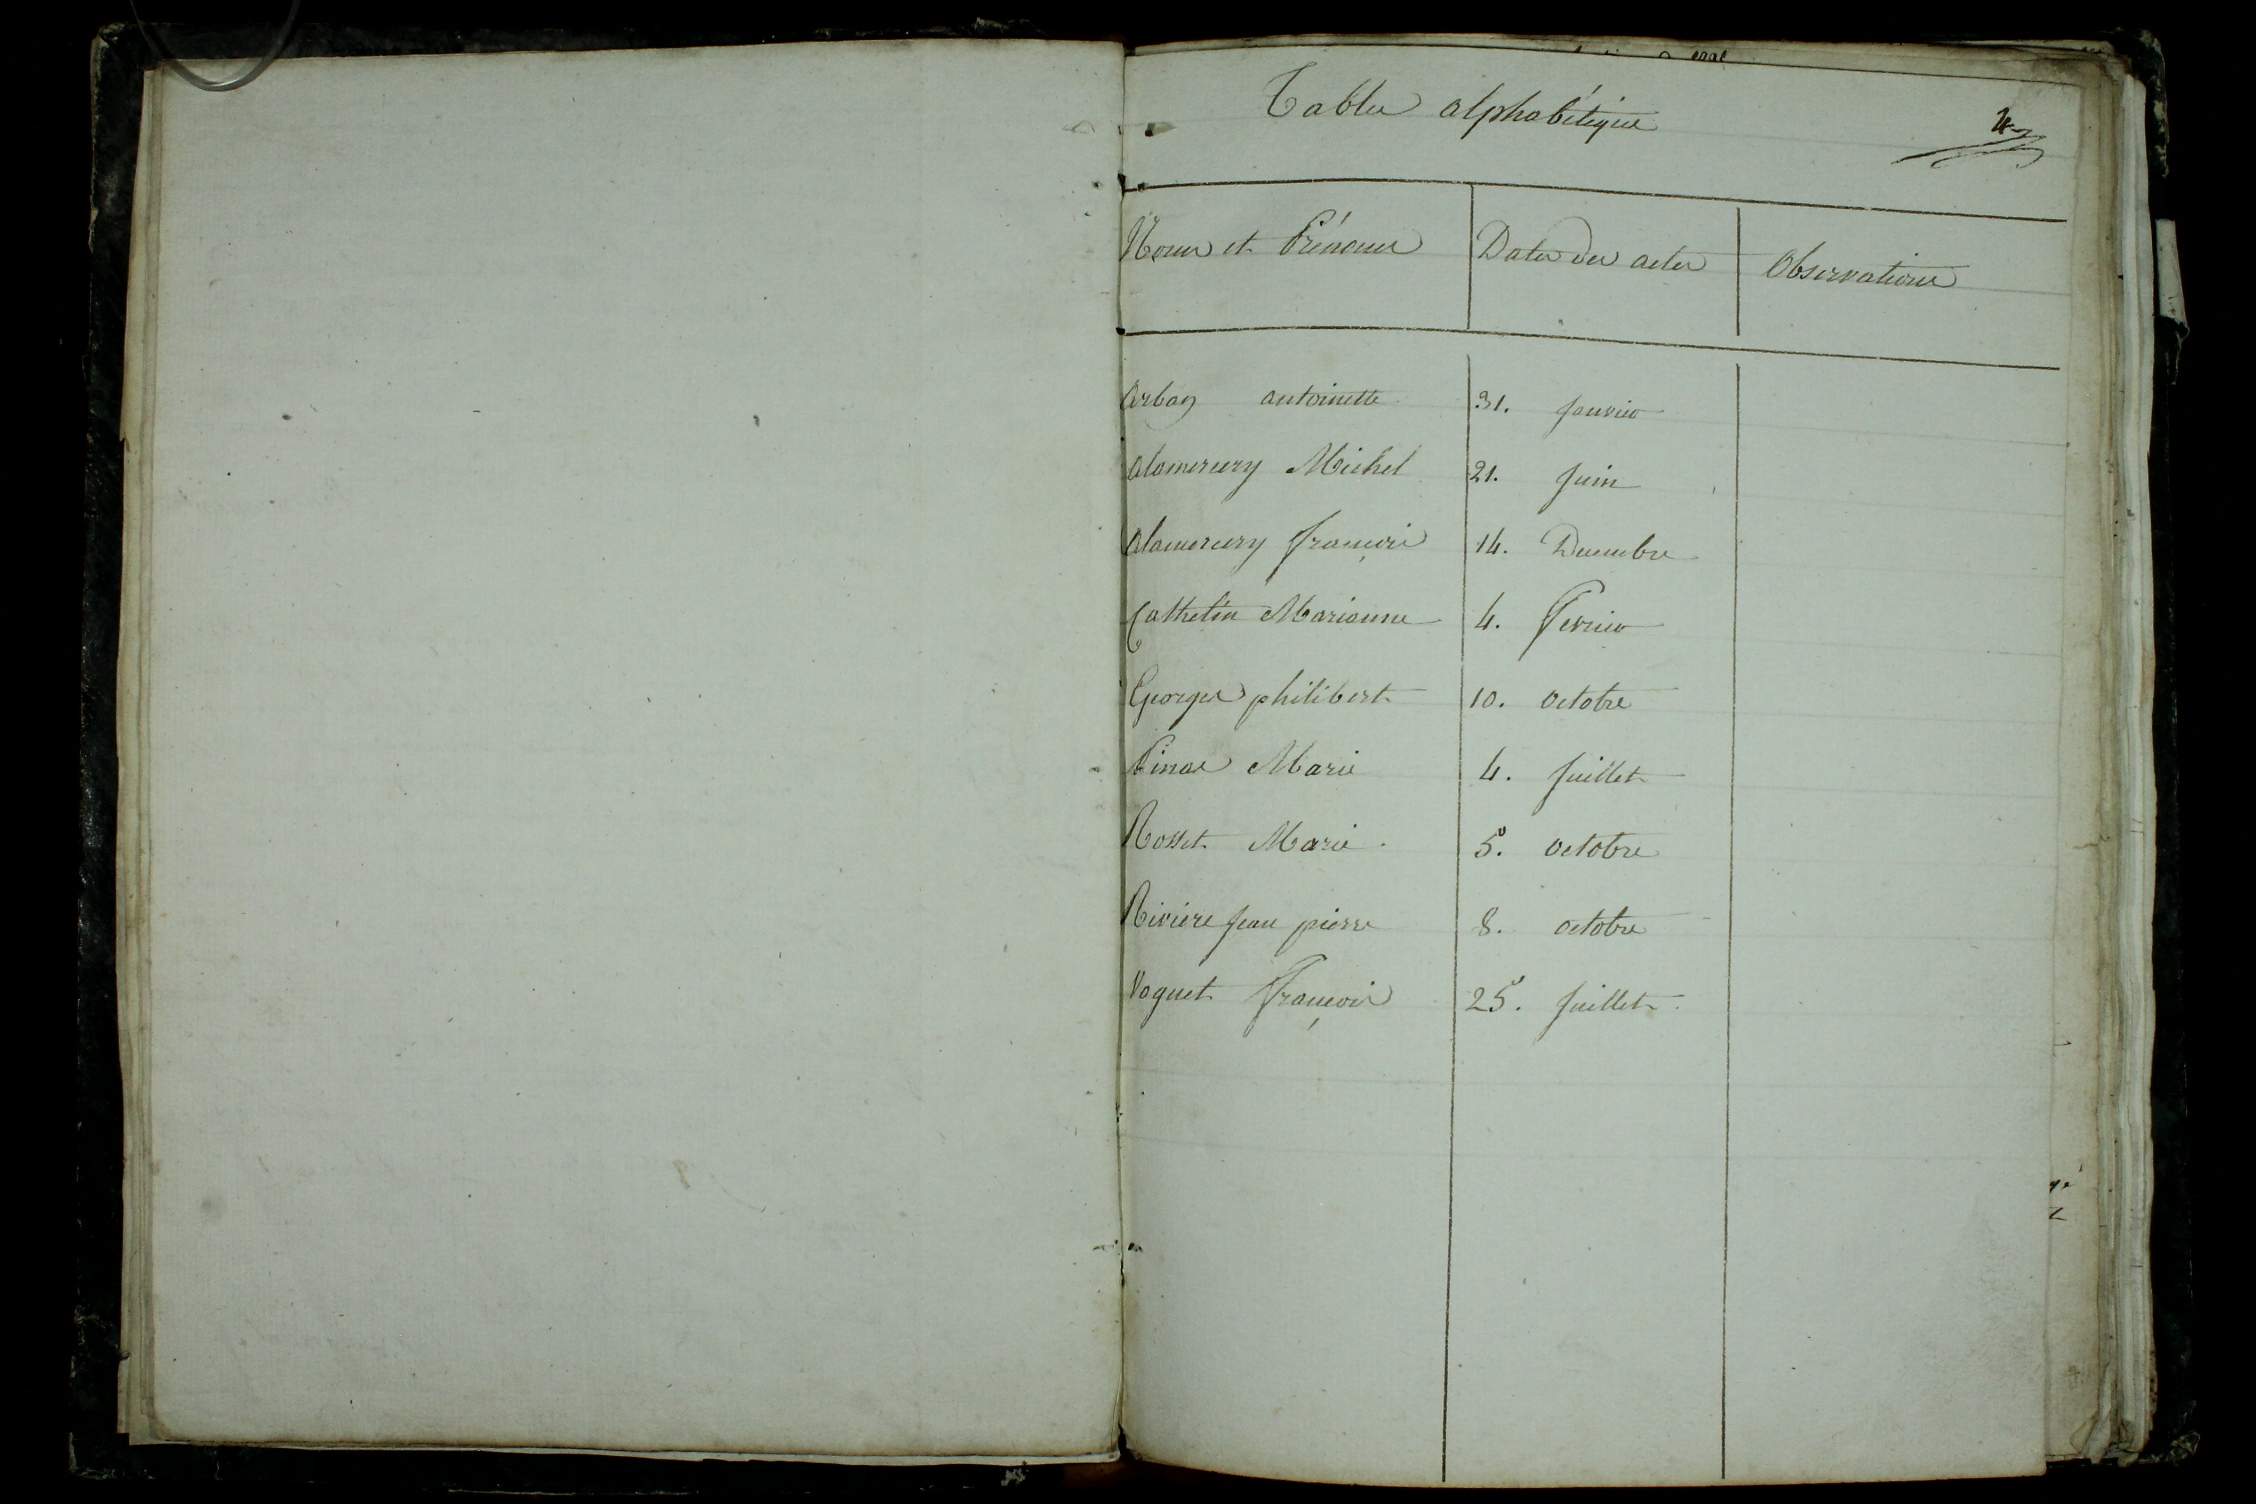 Tables alphabétiques
4
Noms et Prénoms Dates des actes Observations
Arban antoinette 31. janvier
alamercery Michel 21. juin
alamercery françois 14. Decembre
Cathelin Marianne 4. Fevrier
Georges philibert 10. octobre
Pinas Marie 4. juillet
Rosset Marie 5. octobre
Riviere jean pierre 8. octobre
Voguet François 25. juillet